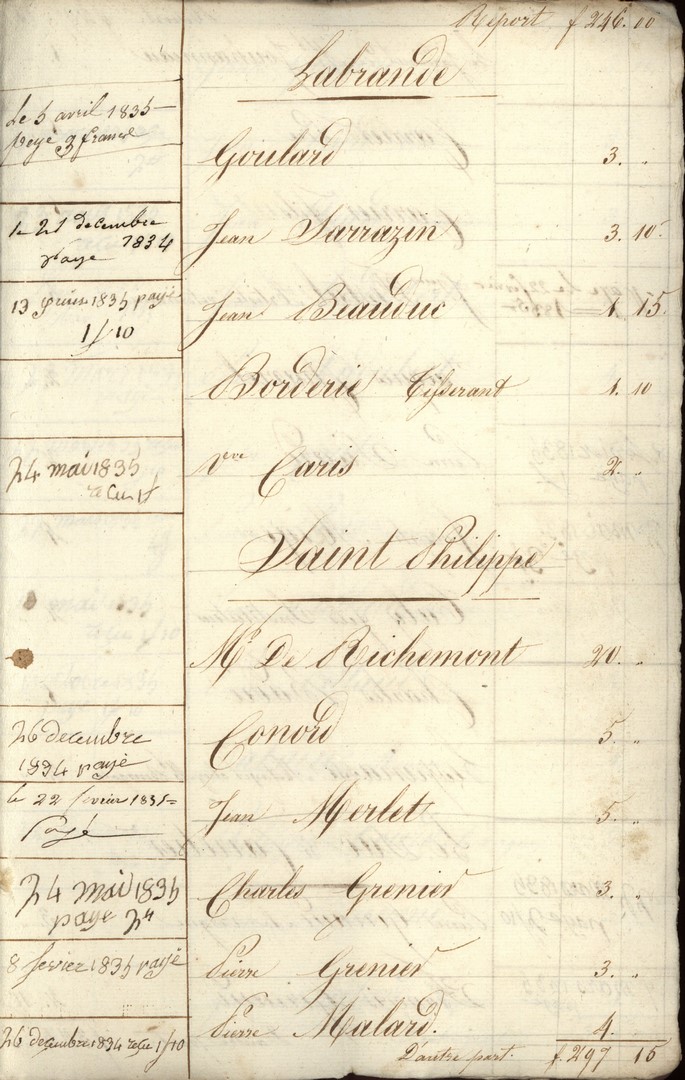 Report f 246. 00
Labrande
Le 5 avril 1835
payé 3 francs
Goulard 3. "
le 21 decembre
1834
paye
Jean Sarrazin 3. 10.
13 1835 payé
1f 10
Jean Beauduc 1. 15.
Borderie Tisserant 1. 10
24 mai 1835
recu 1f
Vve Caris 2. "
Saint Philippe
Mr De Richemont 20. "
26 decembre
1834 payé
Conord 5. "
le 22 fevrier 1835=
Payé
Jean Merlet 5. "
24 mai 1835
paye
Charles Grenier 3. "
8 fevrier 1835 payé
Pierre Grenier 3. "
26 decembre 1834 recu 1f10
Pierre Malard. 4.
D'autre part. f. 297 15